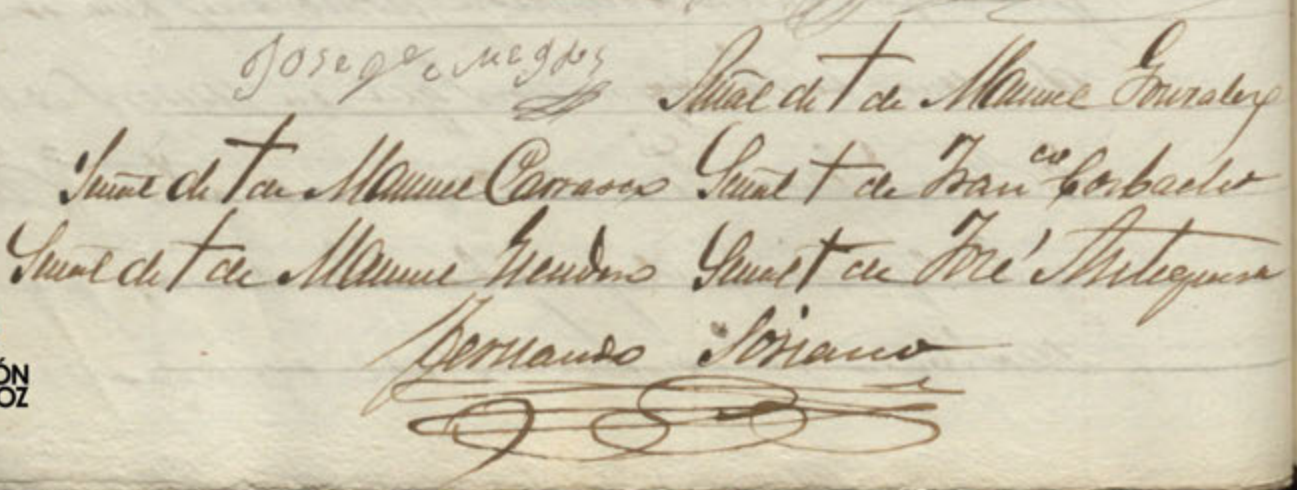 Jose
Señal de † de Manuel Gonzalez
Señal de † de Manuel Carrasco Señal † de Franco Corbacho
Señal de † de Manuel Señal † de José Antequera
Fernando Soriano
ÓN
OZ